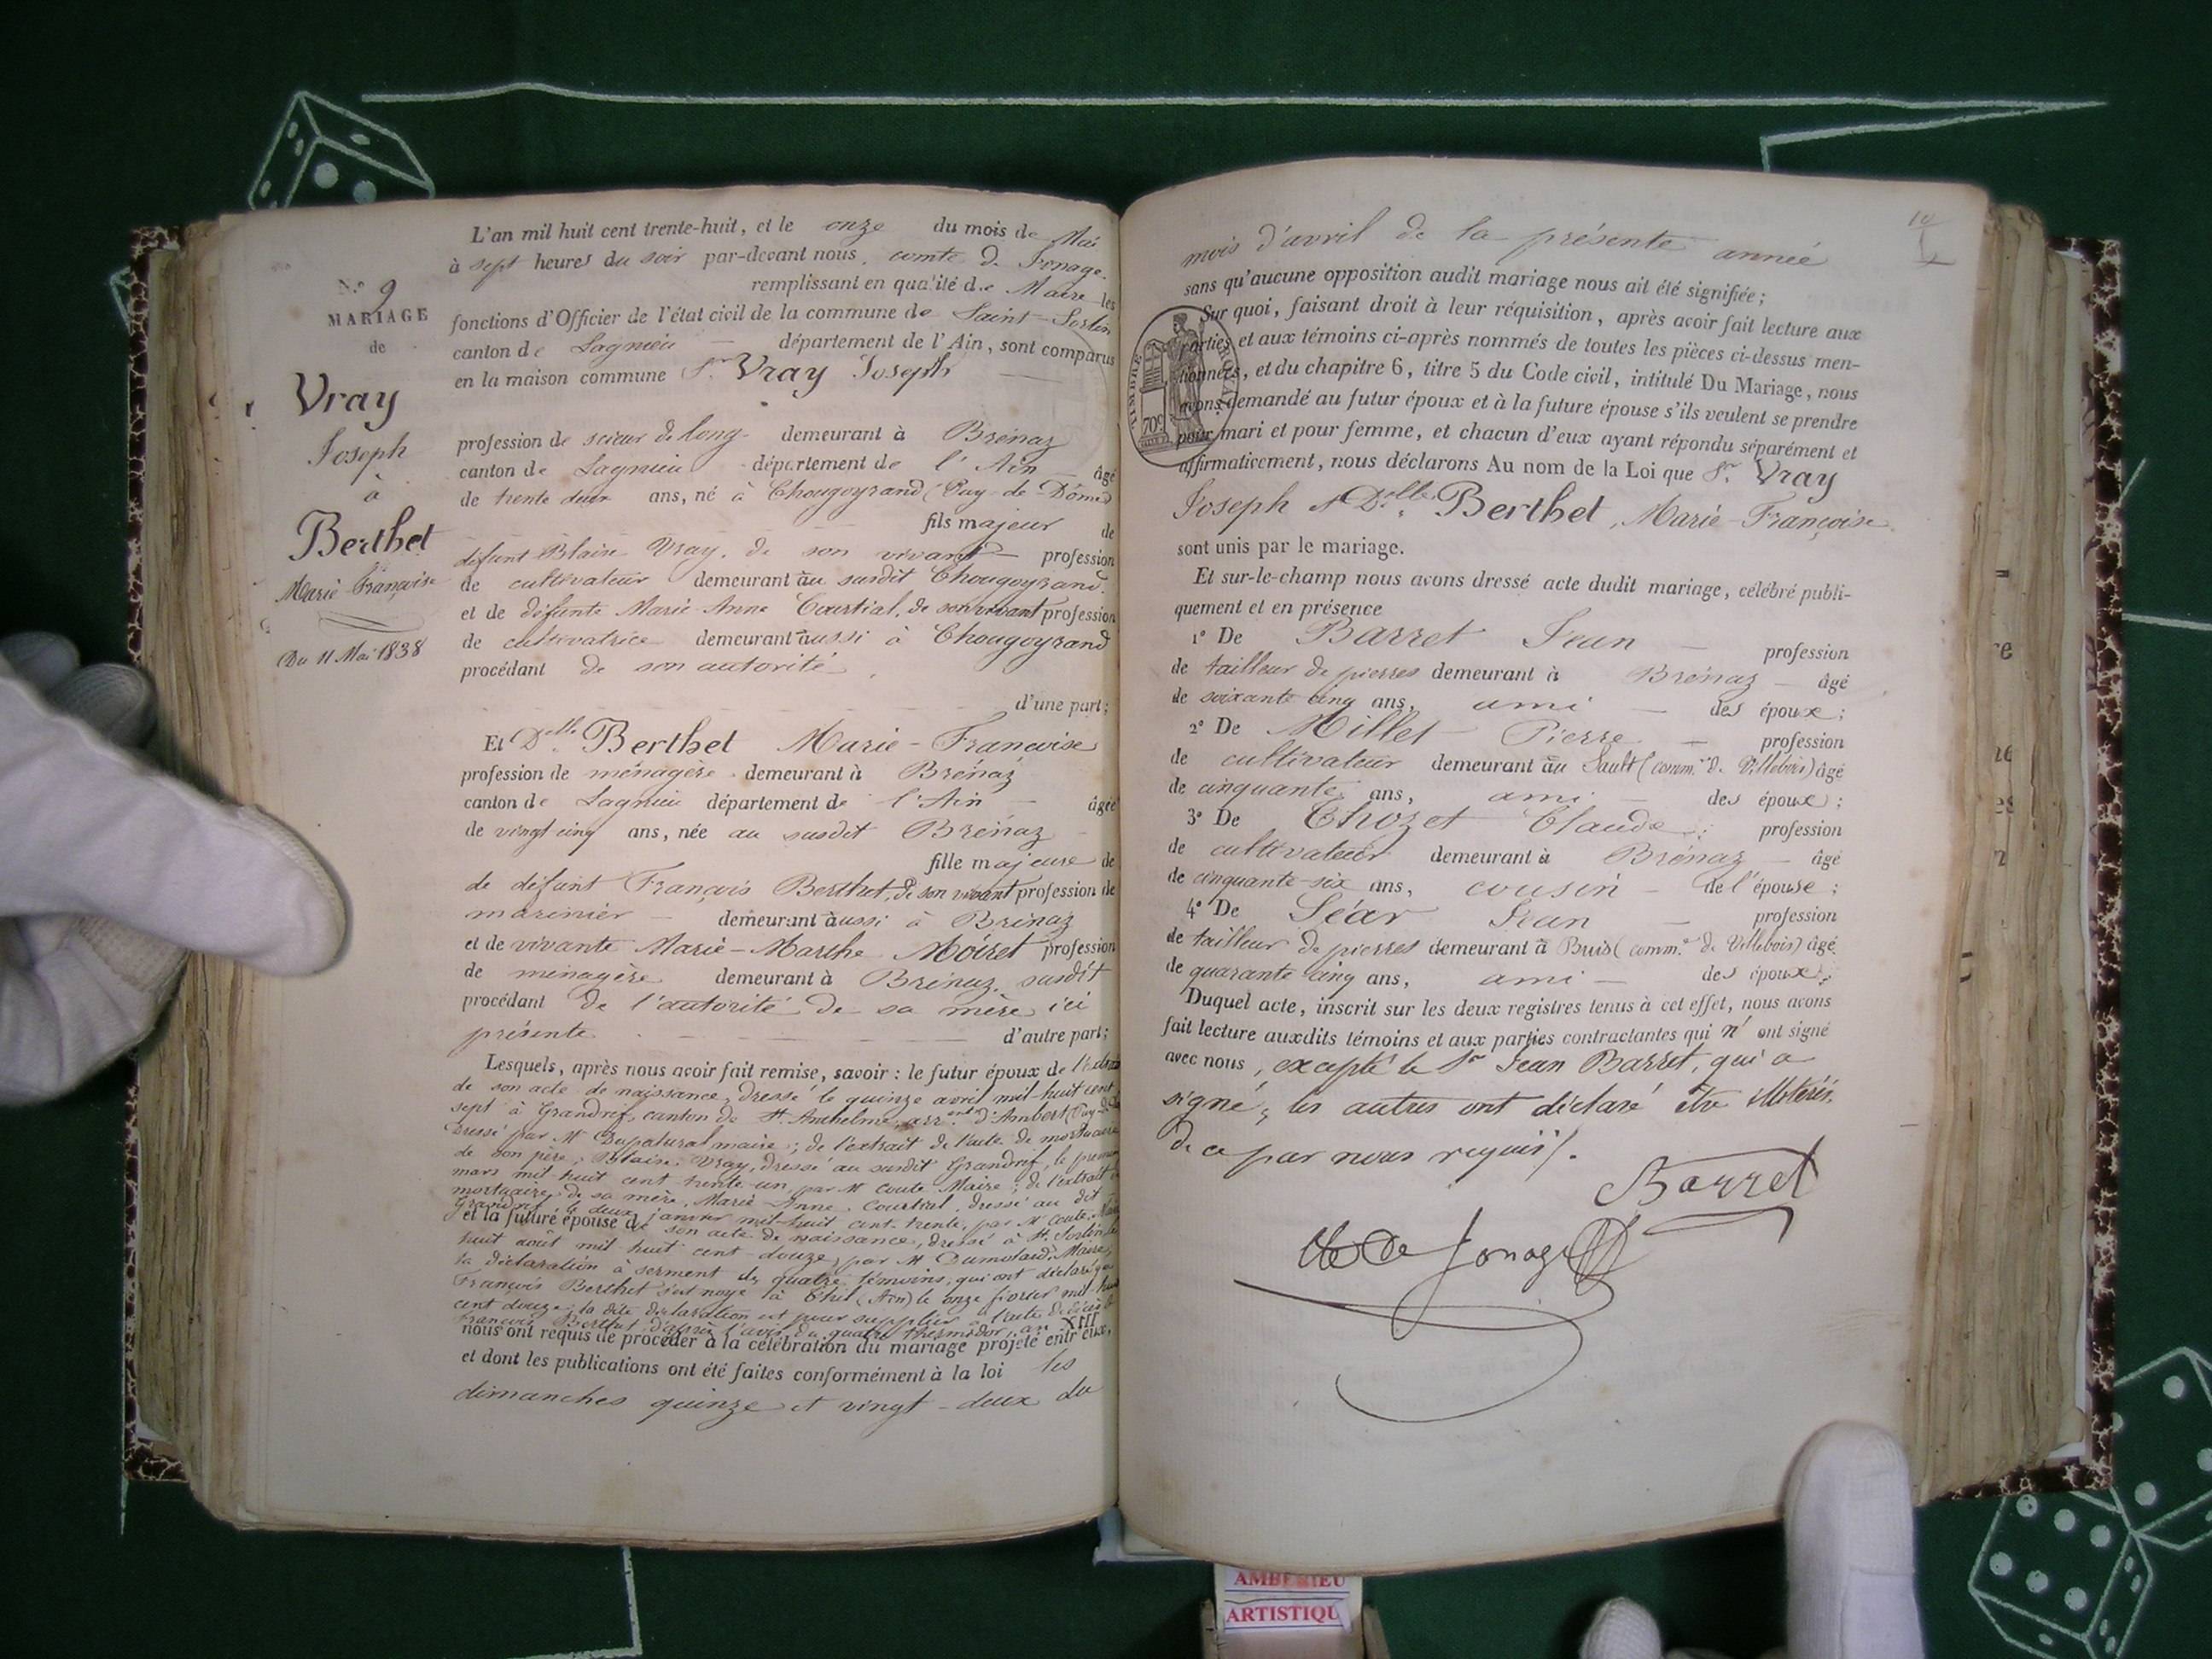 N.o 9
MARIAGE
de
Vray
Joseph
à
Berthet
Marie Françoise
Du 11 Mai 1838
L'an mil huit cent trente-huit, et le onze du mois de Mai
à sept heures du soir par-devant nous, comte de Jonage
remplissant en qualité de Maire les
fonctions d'Officier de l'état civil de la commune de Saint-Sorlin
canton de Lagnieu — département de l'Ain, sont comparus
en la maison commune Sr. Vray Joseph —
profession de scieur de long demeurant à Brénaz
canton de Lagnieu département de l'Ain âgé
de trente deux ans, né à Chougoyrand (Puy-de-Dôme)
fils majeur de
défunt Blaise Vray, de son vivant — profession
de cultivateur demeurant au susdit Chougoyrand.
et de défunte Marie Anne Courtial, de son vivant profession
de cultivatrice demeurant aussi à Chougoyrand
procédant de son autorité
d'une part;
Et Delle Berthet Marie-Francoise
profession de ménagère demeurant à Brénaz
canton de Lagnieu département de l'Ain — âgée
de vingt-cinq ans, née au susdit Brénaz
fille majeure de
de défunt François Berthet, de son vivant profession de
marinier — demeurant aussi à Brénaz
et de vivante Marie-Marthe Moiret profession
de ménagère demeurant à Brénaz susdit
procédant de l'autorité de sa mère ici
présente d'autre part;
Lesquels, après nous avoir fait remise, savoir : le futur époux de l'extrait
de son acte de naissance, dressé le quinze avril mil-huit cent
sept à Grandrif, canton de St. Anthelme, arr.ent d'Ambert
Dressé par Mr Dupatural maire; de l'extrait de l'acte de mortuaire
de son père, Blaise Vray, dressé au susdit Grandrif, le premier
mars mil huit cent trente-un, par Mr Coute Maire; de l'extrait
mortuaire de sa mère, Marie-Anne Courtial, dressé au dit
Grandrif le deux janvier mil-huit cent trente, par Mr Coute,
et la future épouse de son acte de naissance, dressé à St. Sorlin le
huit août mil huit cent-douze, par Mr Dumolard, Maire,
la déclaration à serment des quatre témoins, qui ont déclaré que
François Berthet s'est noyé à (Ain) le onze février mil-huit
cent douze; la dite déclaration est pour suppléer à l'acte de décès de
François Berthet d'après l'avis du quatre thermidor, an XIII
nous ont requis de procéder à la célébration du mariage projeté entr'eux,
et dont les publications ont été faites conformément à la loi les
dimanches quinze et vingt-deux du
10
mois d'avril de la présente année
sans qu'aucune opposition audit mariage nous ait été signifiée;
Sur quoi, faisant droit à leur réquisition, après avoir fait lecture aux
parties et aux témoins ci-après nommés de toutes les pièces ci-dessus men-
tionnées, et du chapitre 6, titre 5 du Code civil, intitulé Du Mariage, nous
avons demandé au futur époux et à la future épouse s'ils veulent se prendre
pour mari et pour femme, et chacun d'eux ayant répondu séparément et
affirmativement, nous déclarons Au nom de la Loi que Sr. Vray
Joseph et Delle Berthet, Marie-Françoise
sont unis par le mariage.
Et sur-le-champ nous avons dressé acte dudit mariage, célébré publi-
quement et en présence
1º De Barret Jean — profession
de tailleur de pierres demeurant à Brénaz — âgé
de soixante cinq ans, ami — des époux;
2º De Millet Pierre — profession
de cultivateur demeurant au Sault (comm.e de Villebois) âgé
de cinquante ans, ami — des époux;
3º De Chozet Claude; profession
de cultivateur demeurant à Brénaz — âgé
de cinquante-six ans, cousin — de l'épouse;
4º De Séar Jean — profession
de tailleur de pierres demeurant à Buis (comm.e de Villebois) âgé
de quarante-cinq ans, ami — des époux;
Duquel acte, inscrit sur les deux registres tenus à cet effet, nous avons
fait lecture auxdits témoins et aux parties contractantes qui n' ont signé
avec nous, excepté le Sr Jean Barret, qui a
signé, les autres ont déclaré être illitérés,
de ce par nous requis/.
Barret
Cte De Jonage
TIMBRE ROYAL
70c
AMBERIEU
ARTISTIQU